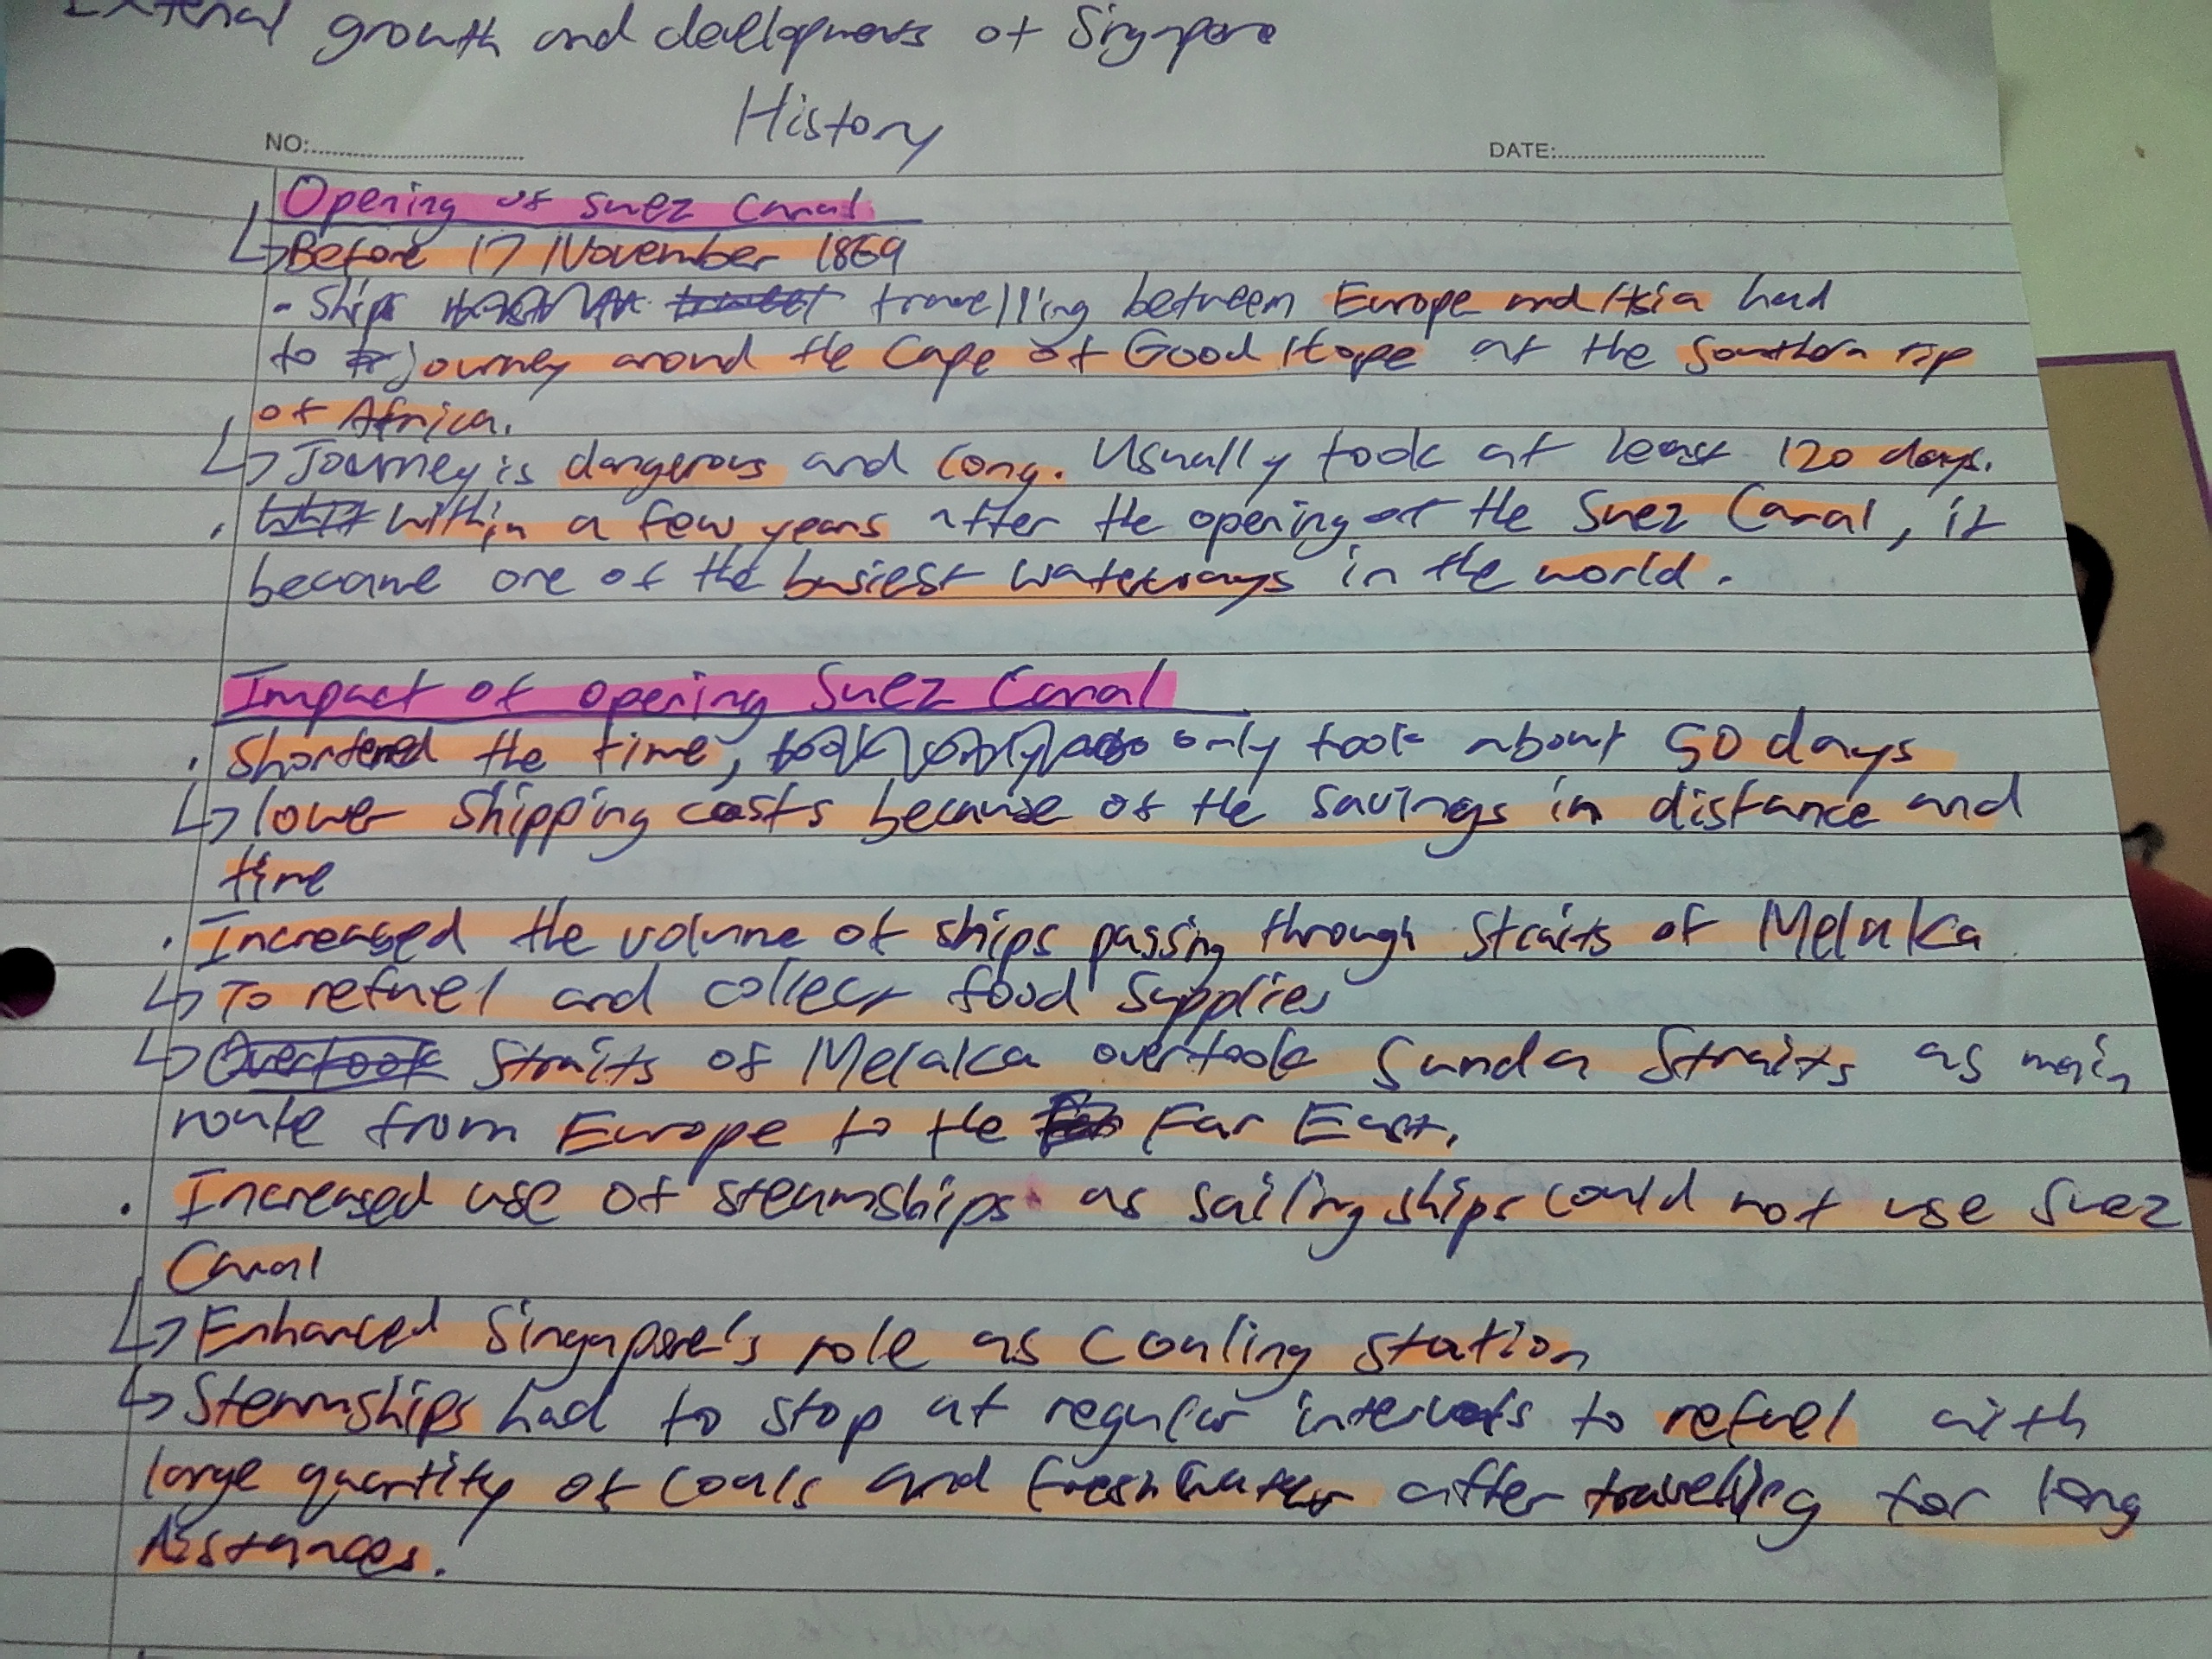 External growth and developments of Singapore
History
NO:
DATE:
Opening of Suez Canal
↳ Before 17 November 1869
- Ships travelling between Europe and Asia had
to journey around the Cape of Good Hope at the Southern tip
of Africa.
↳ Journey is dangerous and long. Usually took at least 120 days.
· within a few years after the opening of the Suez Canal, it
became one of the busiest waterways in the world.
Impact of opening Suez Canal
· Shortened the time, only took about 50 days
↳ lower shipping costs because of the savings in distance and
time
· Increased the volume of ships passing through Straits of Melaka
↳ To refuel and collect food supplies
↳ Straits of Melaka overtook Sunda Straits as main
route from Europe to the Far East.
· Increased use of steamships as sailing ships could not use Suez
Canal
↳ Enhanced Singapore's role as coaling station
↳ Steamships had to stop at regular intervals to refuel with
large quantity of coals and fresh water after travelling for long
distances.